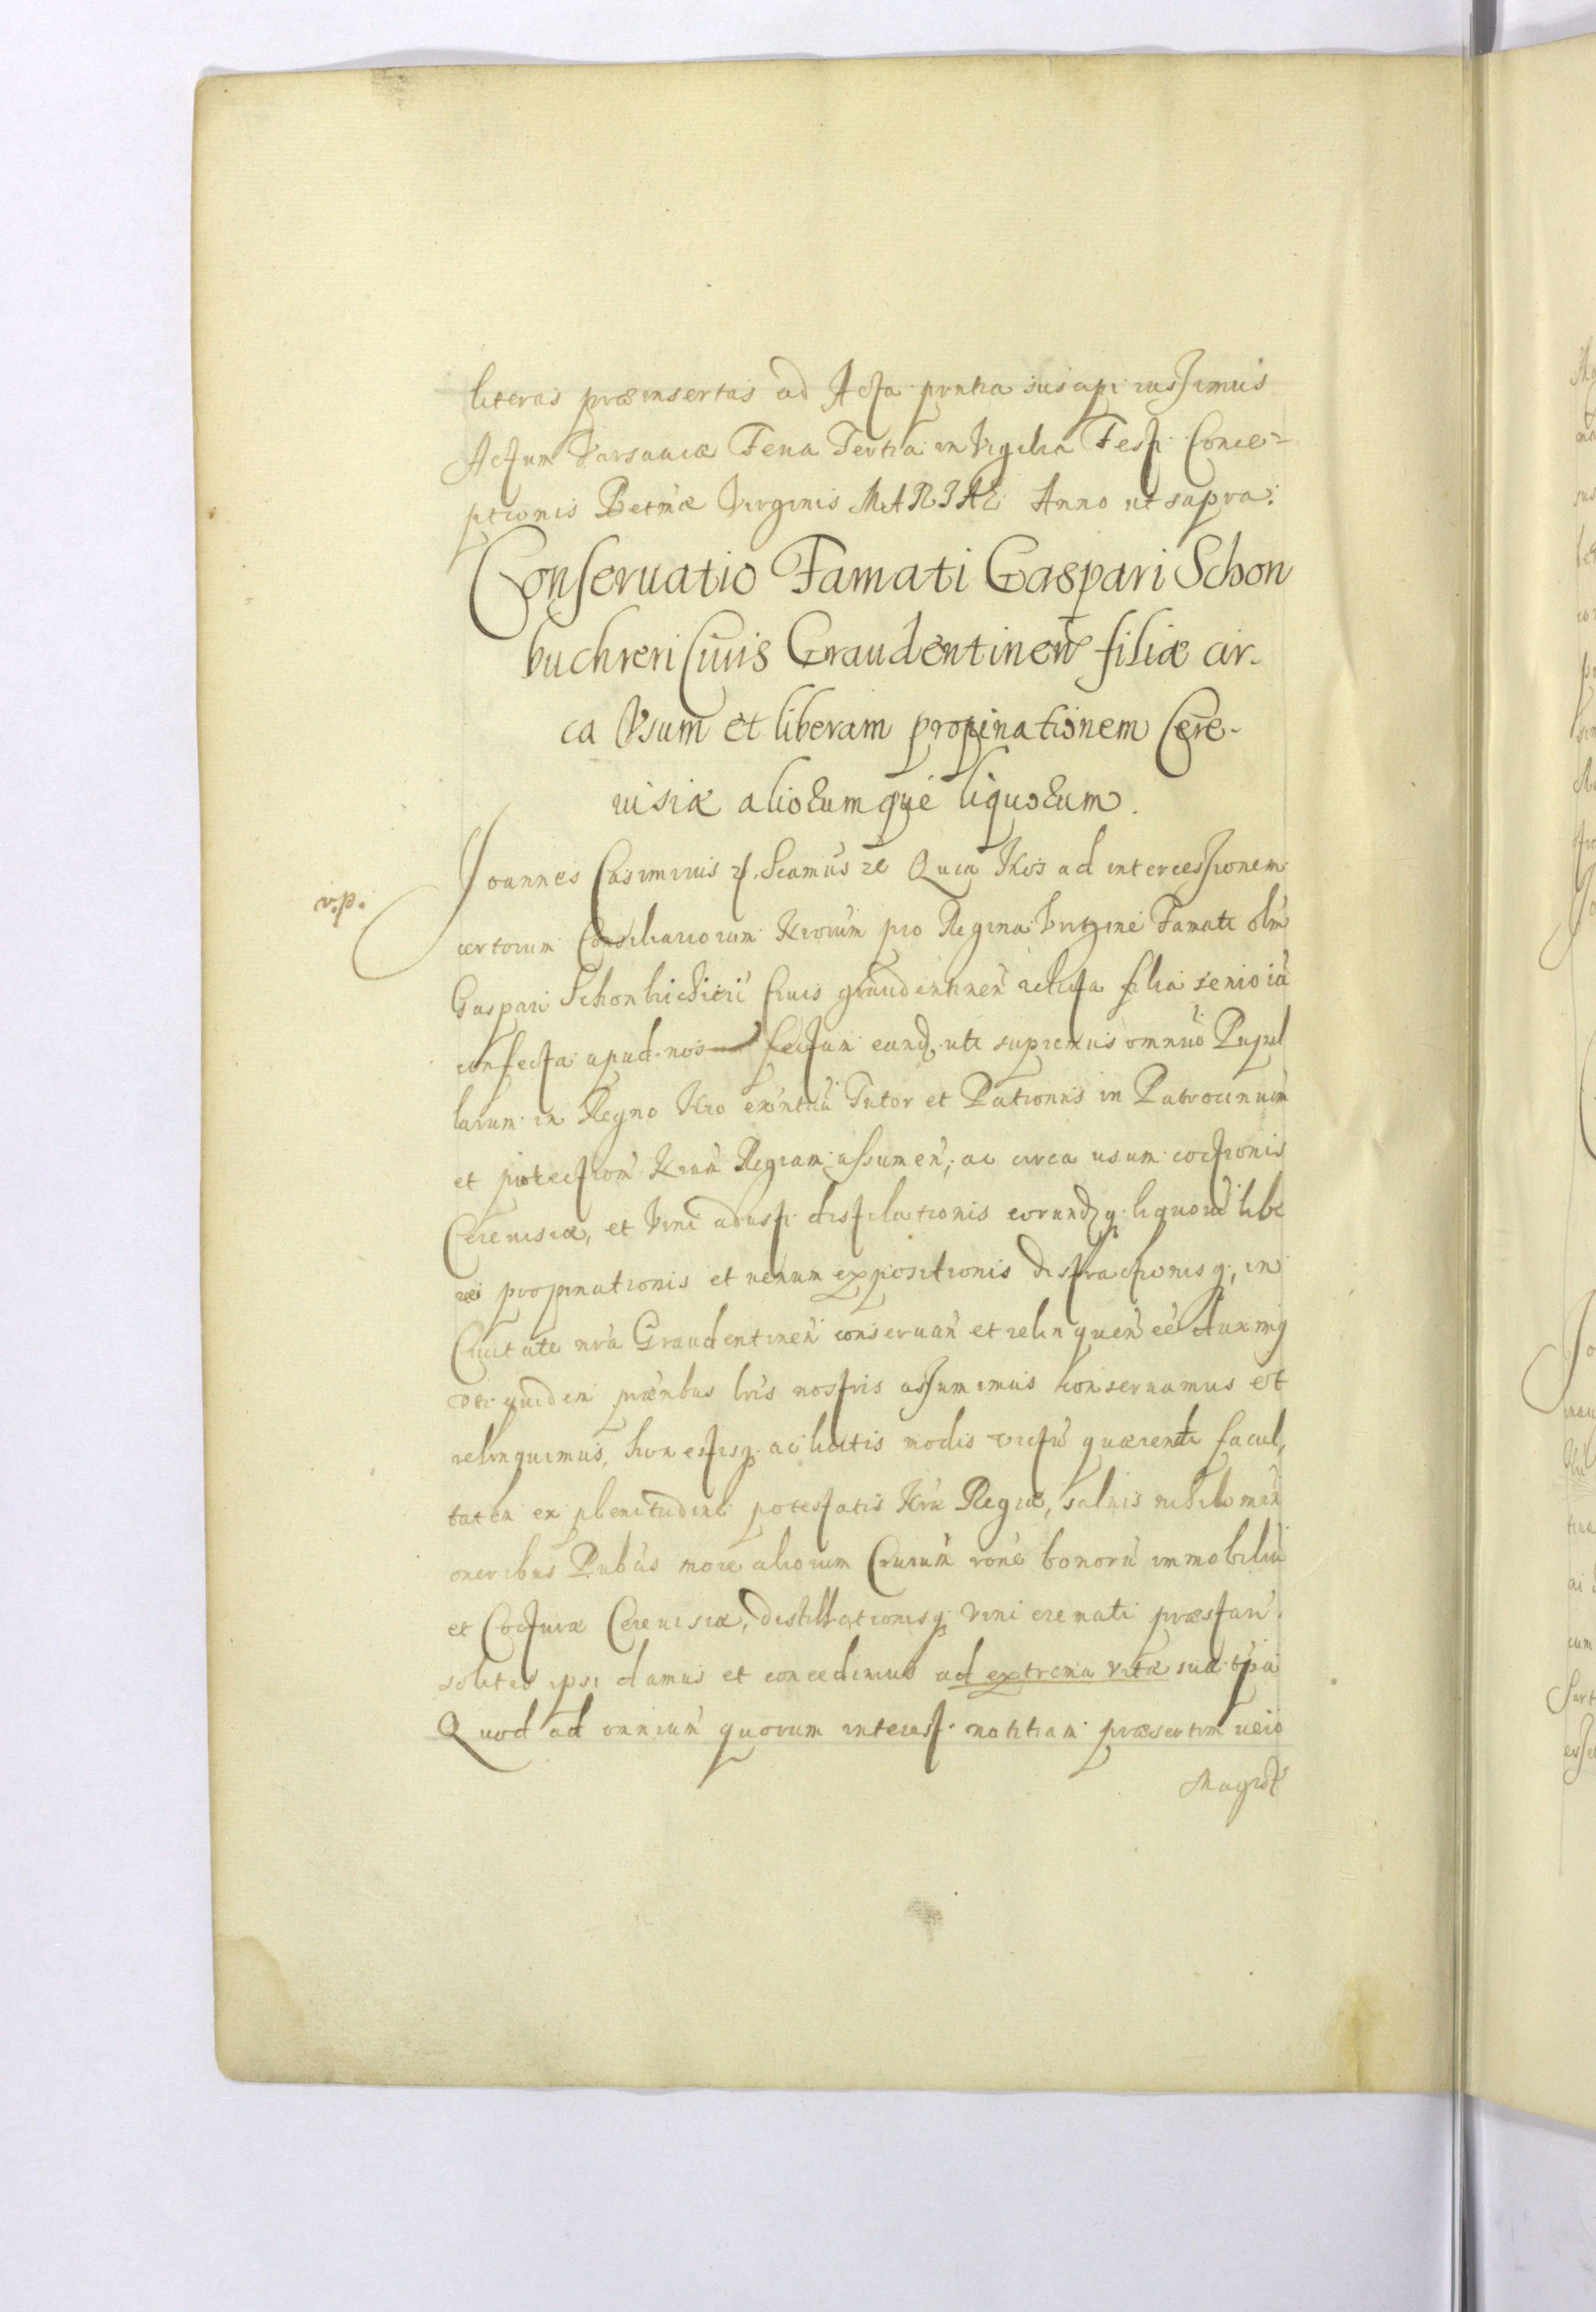 literas præinsertas ad Acta pñtia suscipi iussimus
Actum Varsauiæ Feria Tertia in Vigilia Festi Conce=
ptionis Betmæ Virginis MARIAE Anno ut supra.
Conseruatio Famati Gaspari Schon
buchreri Ciuis Graudentineñ filiæ cir-
ca Vsum et liberam propinationem Cere-
uisiæ aliorumque liquorum.
v.p.
Joannes Casimirus Scimus Quia Nos ad intercessionem
certorum Consiliariorum Nrorum pro Regina Virgine Famati olim
Gaspari Schonbuchreri Ciuis graudentineñ relicta filia senio iã
confecta apud nos factam eand. uti supremus omniũ Pupil
larum in Regno Nro exñtiũ Tutor et Patronus in Patrocinium
et protectioñ Nram Regiam assumeñ; ac circa usum coctionis
Cereuisiæ, et Vini adusti distilationis eorundq. liquorũ libe
ræ propinationis et uenum expositionis distractionisq;, in
Ciuitate nrã Graudentineñ conseruañ et relinqueñ eẽ duximg
uti quidem præñtibus lris nostris assumimus conseruamus et
relinquimus, honestisq. ac licitis modis victũ quærendi facul,
tatem ex plenitudine potestatis Nræ Regiæ, saluis nihilomiñ
oneribus Pubcis more aliorum Ciuium roñe bonorũ immobiliũ
et Cocturæ Cereuisiæ, distillationisq. Vini cremati præstari
solitis ipsi damus et concedimus ad extrema vitæ suæ tpã
Quod ad omnium quorum interest notitiam præsertim uero
Magistͭ